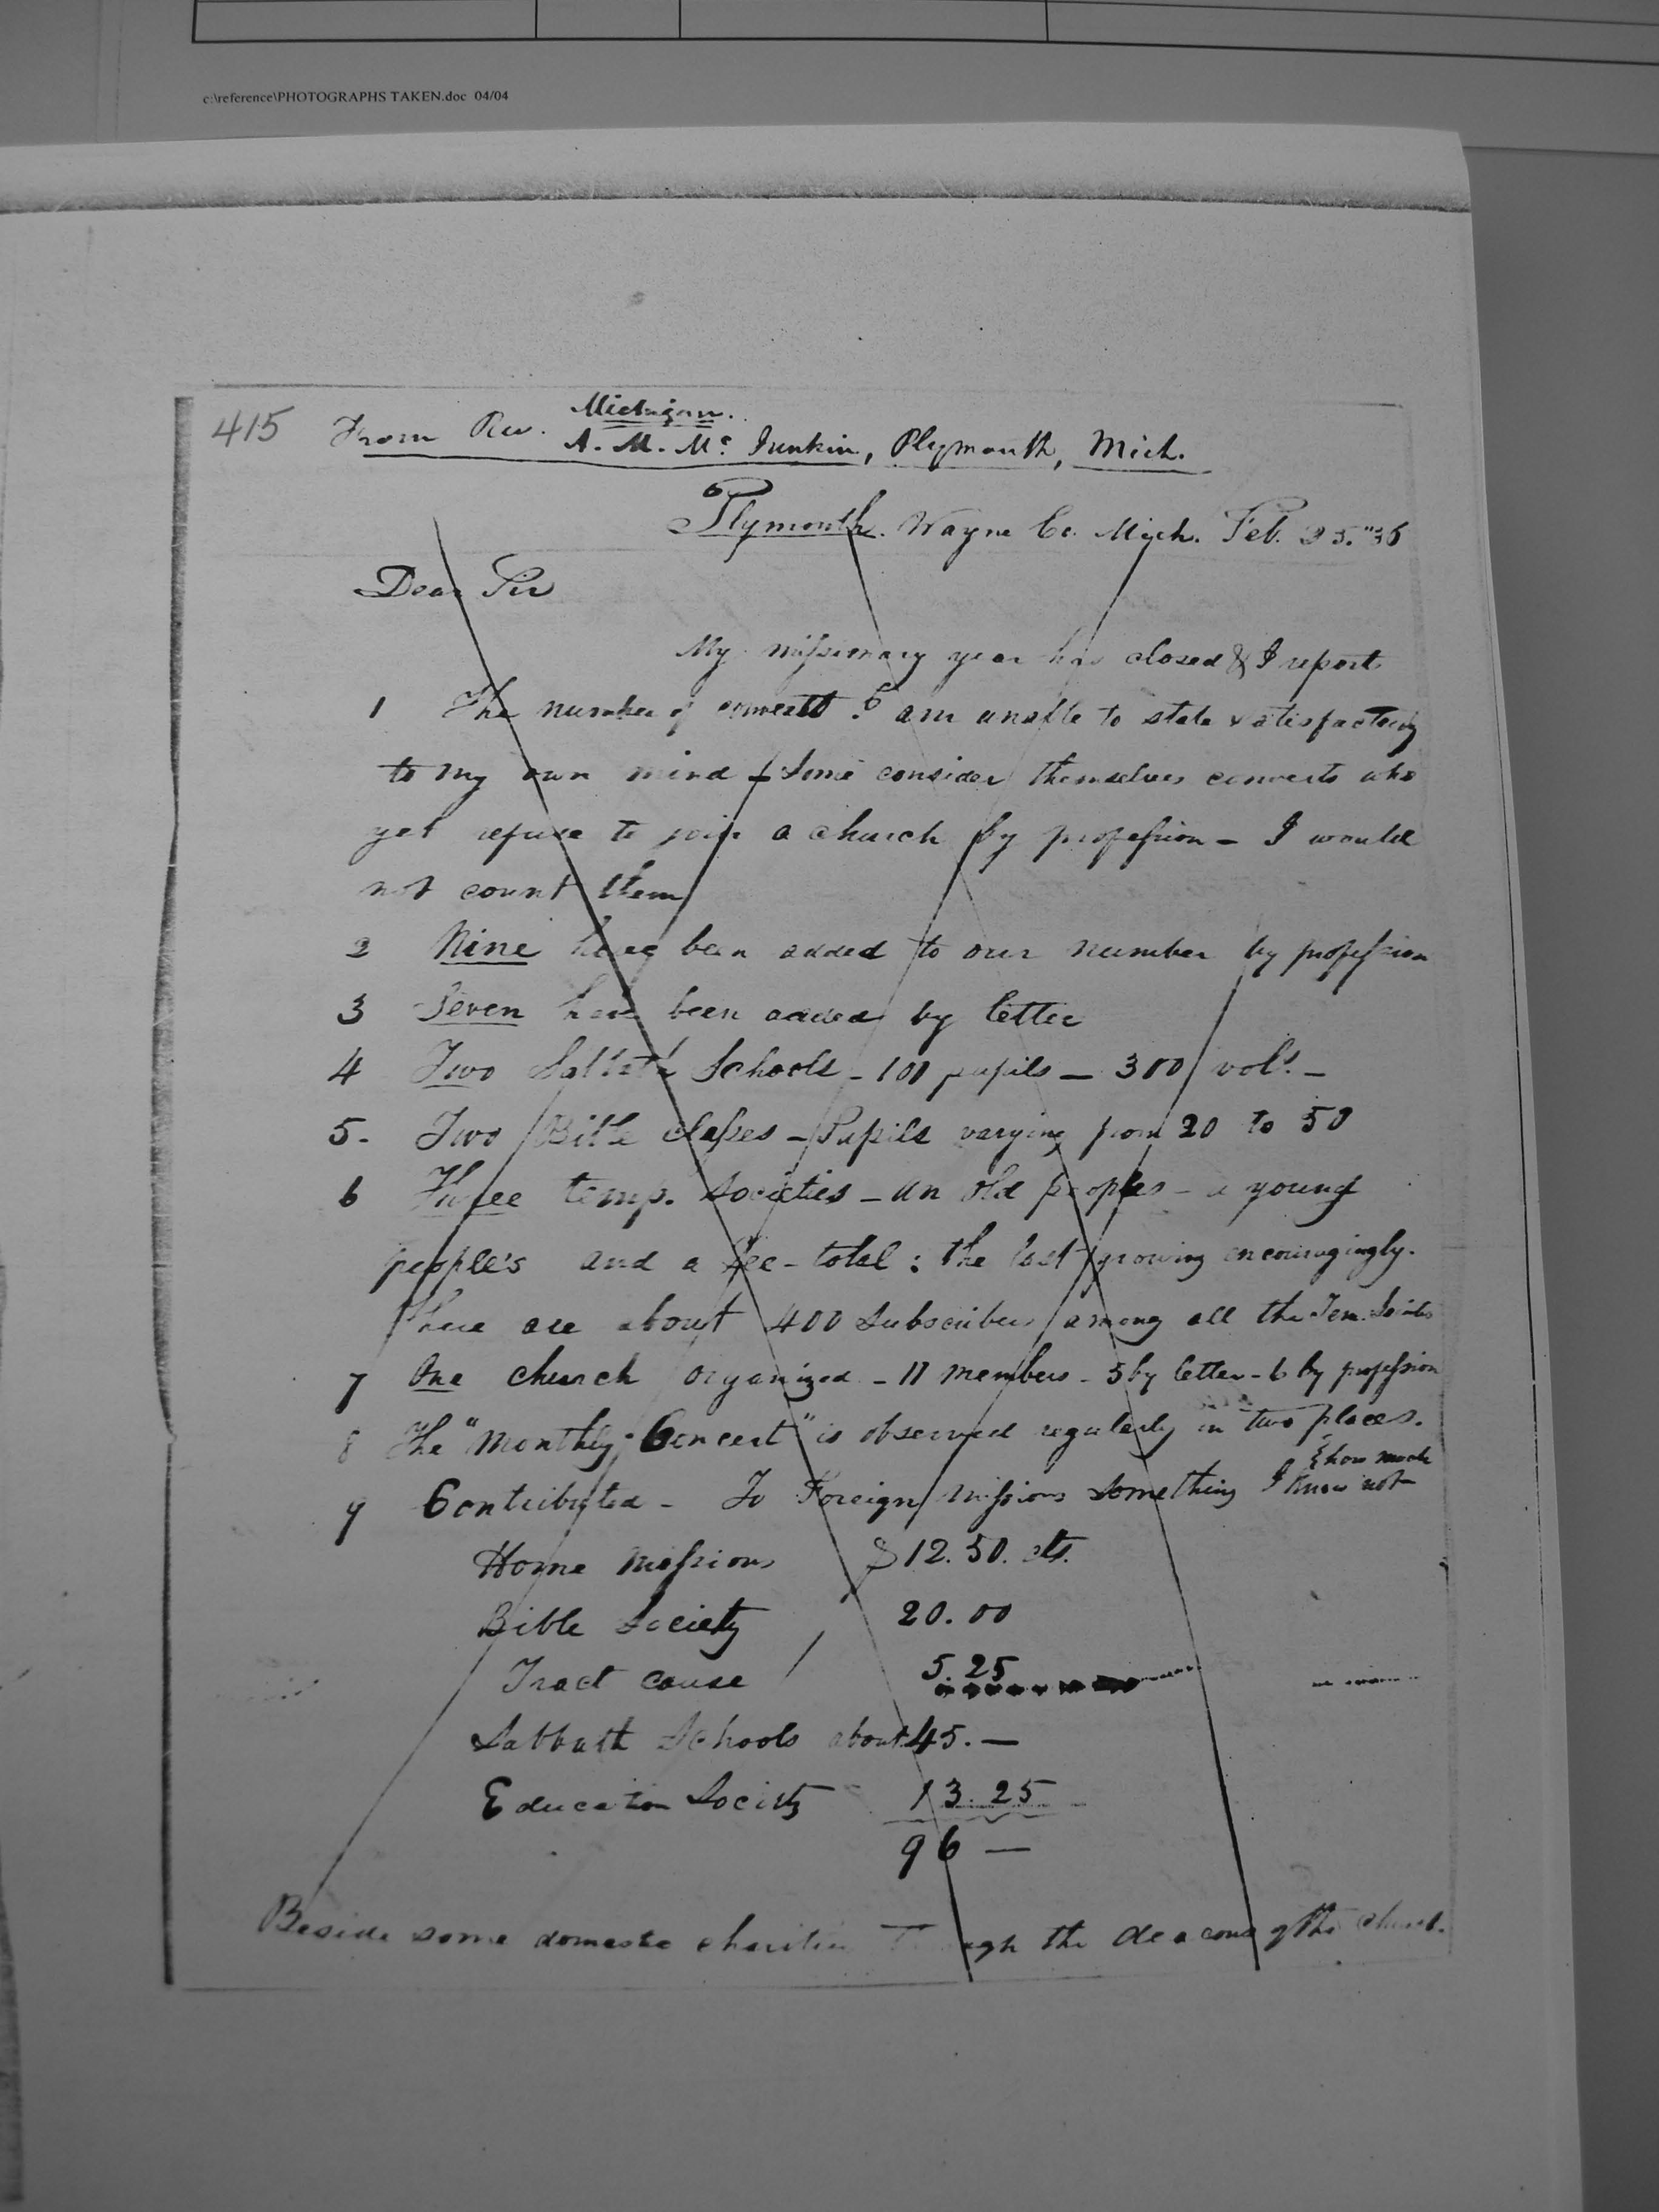 c:\reference\PHOTOGRAPHS TAKEN.doc 04/04
Michigan.
415 From Rev. A. M. Mc Junkin, Plymouth, Mich.
Plymouth. Wayne Co. Mich. Feb. 25. "36
Dear Sir
My missionary year has closed & I report
1 The number of converts I am unable to state satisfactorily
to my own mind - Some consider themselves converts who
yet refuse to join a church by profession - I would
not count them
2 Nine have been added to our number by profession
3 Seven have been added by letter
4 Two Sabbath Schools - 100 pupils - 300 vols. -
5. Two Bible classes - Pupils varying from 20 to 50
6 Three temp. societies - an old peoples - a young
people's and a tee-total : the last growing encouragingly.
There are about 400 Subscribers among all the Tem.
7 One church organized - 11 members - 5 by letter - 6 by profession
8 The "Monthly Concert" is observed regularly in two places.
9 Contributed - To Foreign Missions something & how much I know not
Home Missions $12.50. cts.
Bible Society 20.00
Tract cause 5.25
Sabbath Schools about 45. —
Education Society 13.25
96 —
Beside some domestic charities Through the deacons of the church.